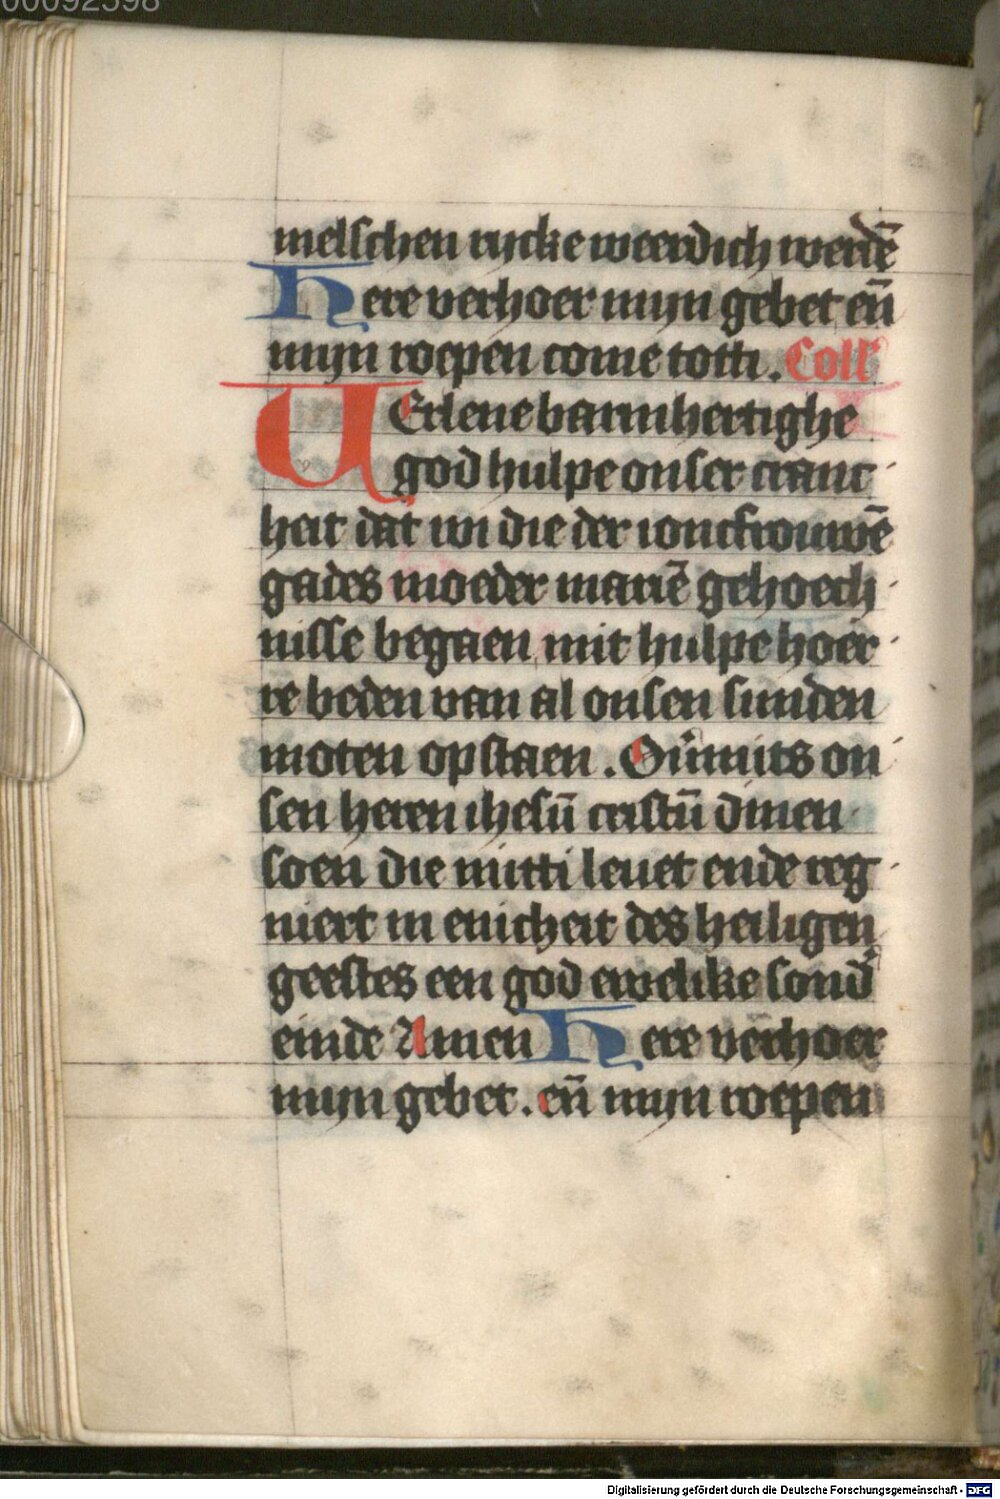 00092598
melschen rycke weerdich werdē
Here verhoer myn gebet eñ
myn roepen come totti. Coll'
VErlene barmhertighe
god hulpe onser cranc
heit dat wi die der ioncfrouwē
gades moeder mariē gehoech
nisse begaen mit hulpe hoer
re beden van al onsen sunden
moten opstaen. Oūmits on
sen heren ihesū cristū dinen
soen die mitti leuet ende reg
niert in enicheit des heiligen
geestes een god ewelike sond'
einde Amen Here verhoer
myn gebet. eñ myn roepen
Digitalisierung gefördert durch die Deutsche Forschungsgemeinschaft - DFG